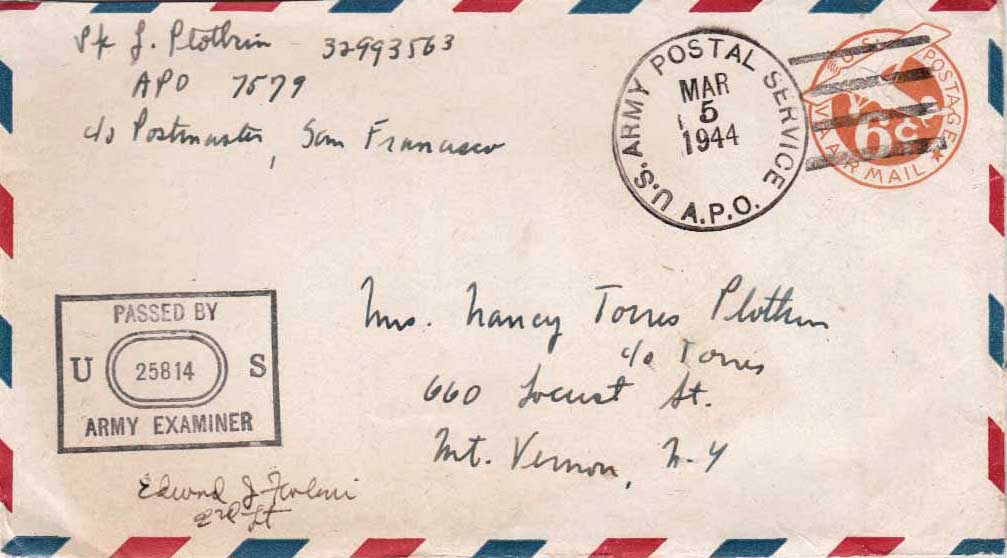 Pfc J. Plothin 32993563
APO 7579
c/o Postmaster, San Francisco
U.S. ARMY POSTAL SERVICE
MAR
5
1944
A.P.O.
U.S. POSTAGE
6c
VIA AIR MAIL
PASSED BY
U 25814 S
ARMY EXAMINER
Mrs. Nancy Torres Plothin
c/o Torres
660 Locust St.
Mt. Vernon, N-Y
Edward J.
2nd Lt